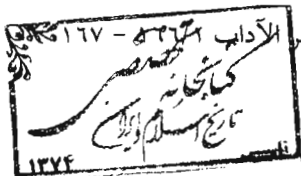 الآداب
١٦٧ -
کتابخانه تخصصی
تاریخ اسلام و ایران
١٣٧٤